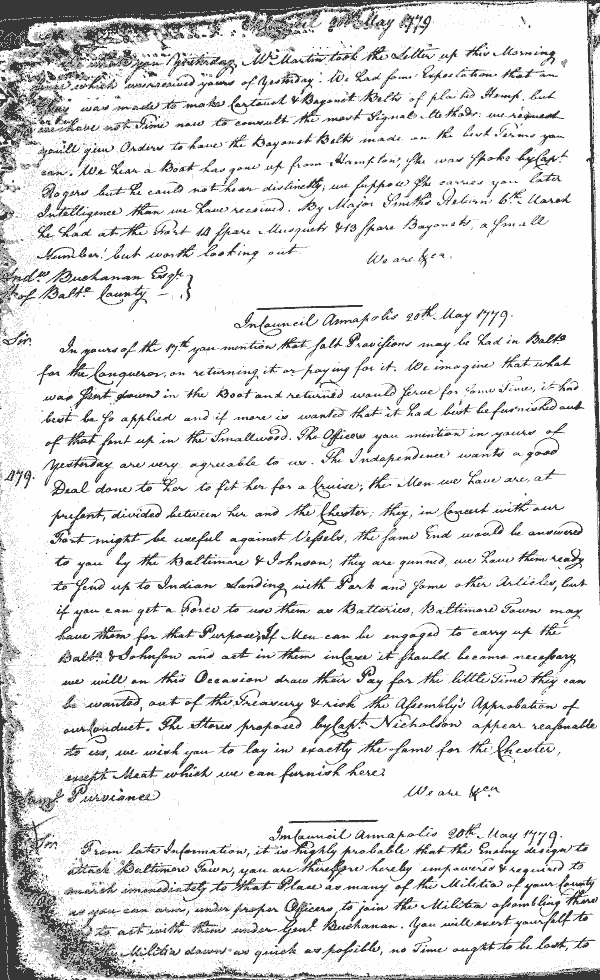 Council 20th May 1779
you Yesterday, Mr Martin took the Letter up this Morning
which we received yours of Yesterday. We had some Expectation that an
was made to make Cartouch & Bayonet Belts of plaited Hemp, but
we have not Time now to consult the most Signal Methods. we request
you'll give Orders to have the Bayonet Belts made on the best Terms you
can. We hear a Boat has gone up from Hampton, she was spoke by Capt.
Rogers but he could not hear distinctly, we suppose She carries you later
Intelligence than we have received. By Major Smiths Return 6th March
he had at the Fort 14 Spare Musquets & 13 Spare Bayonets, a small
Number! but worth looking out.
We are &ca.
Andw Buchanan Esqr
Lt of Balto County
In Council Annapolis 20th May 1779.
Sir.
In yours of the 17th you mention that salt Provisions may be had in Balto
for the Conqueror, on returning it or paying for it. We imagine that what
was sent down in the Boat and returned would serve for some Time, it had
best be so applied and if more is wanted that it had best be furnished out
of that sent up in the Smallwood. The Officers you mention in yours of
Yesterday are very agreeable to us. The Independence wants a good
179.
Deal done to her to fit her for a Cruise; the Men we have are, at
present, divided between her and the Chester; they, in Concert with our
Fort might be useful against Vessels, the same End would be answered
to you by the Baltimore & Johnson, they are gunned, we have them ready
to send up to Indian Landing with Pork and some other Articles, but
if you can get a Force to use them as Batteries, Baltimore Town may
have them for that Purpose, If Men can be engaged to carry up the
Balto & Johnson and act in them in Case it should became necessary
we will on this Occasion draw their Pay for the little Time they can
be wanted, out of the Treasury & risk the Assembly's Approbation of
our Conduct. The Stores proposed by Capt. Nicholson appear reasonable
to us, we wish you to lay in exactly the same for the Chester,
except Meat which we can furnish here.
We are &ca
Purviance
In Council Annapolis 20th May 1779.
Sir.
From late Information, it is highly probable that the Enemy design to
attack Baltimore Town, you are therefore hereby empowered & required to
march immediately to that Place as many of the Militia of your County
as you can arm, under proper Officers, to join the Militia assembling there
to act with them under Genl Buchanan. You will exert yourself to
Militia down as quick as possible, no Time ought to be lost, to